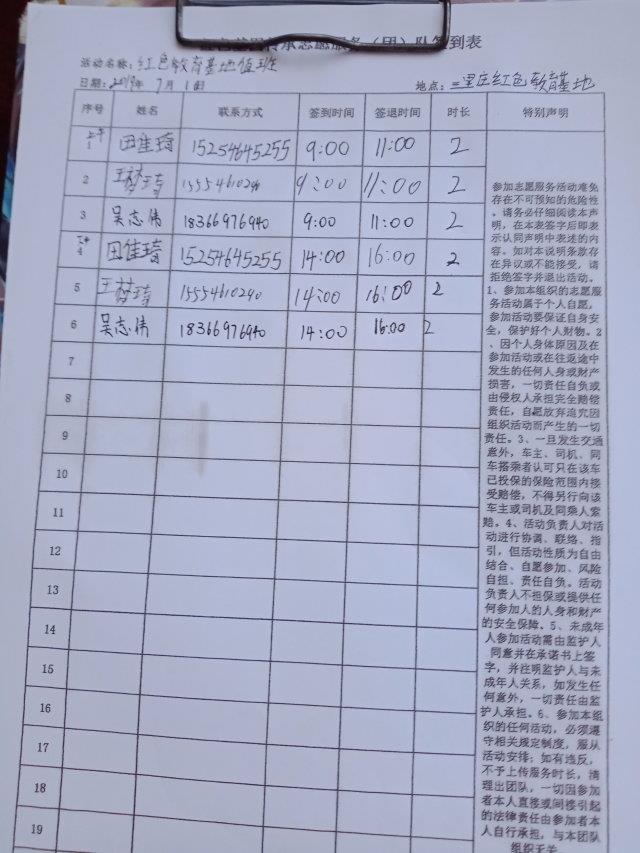 传承志愿服务（团）队签到表
活动名称：红色教育基地值班
日期：2019年 7月 1日 地点：三里庄红色教育基地
序号 姓名 联系方式 签到时间 签退时间 时长 特别声明
上午
1 田佳琦 15254645255 9:00 11:00 2
2 15554610240 9:00 11:00 2
3 吴志伟 18366976940 9:00 11:00 2
下午
4 田佳琦 15254645255 14:00 16:00 2
5 15554610240 14:00 16:00 2
6 吴志伟 18366976940 14:00 16:00 2
7
8
9
10
11
12
13
14
15
16
17
18
19
参加志愿服务活动难免
存在不可预知的危险性
。请务必仔细阅读本声
明，在本表签字后即表
示认同声明中表述的内
容。如对本说明条款存
在异议或不能接受，请
拒绝签字并退出活动。
1、参加本组织的志愿服
务活动属于个人自愿，
参加活动要保证自身安
全，保护好个人财物。2
、因个人身体原因及在
参加活动或在往返途中
发生的任何人身或财产
损害，一切责任自负或
由侵权人承担完全赔偿
责任，自愿放弃追究因
组织活动而产生的一切
责任。3、一旦发生交通
意外，车主、司机、同
车搭乘者认可只在该车
已投保的保险范围内接
受赔偿，不得另行向该
车主或司机及同乘人索
赔。4、活动负责人对活
动进行协调、联络、指
引，但活动性质为自由
结合、自愿参加、风险
自担、责任自负。活动
负责人不担保或提供任
何参加人的人身和财产
的安全保障。5、未成年
人参加活动需由监护人
同意并在承诺书上签
字，并注明监护人与未
成年人关系，如发生任
何意外，一切责任由监
护人承担。6、参加本组
织的任何活动，必须遵
守相关规定制度，服从
活动安排；如有违反，
不予上传服务时长，清
理出团队，一切因参加
者本人直接或间接引起
的法律责任由参加者本
人自行承担，与本团队
组织无关